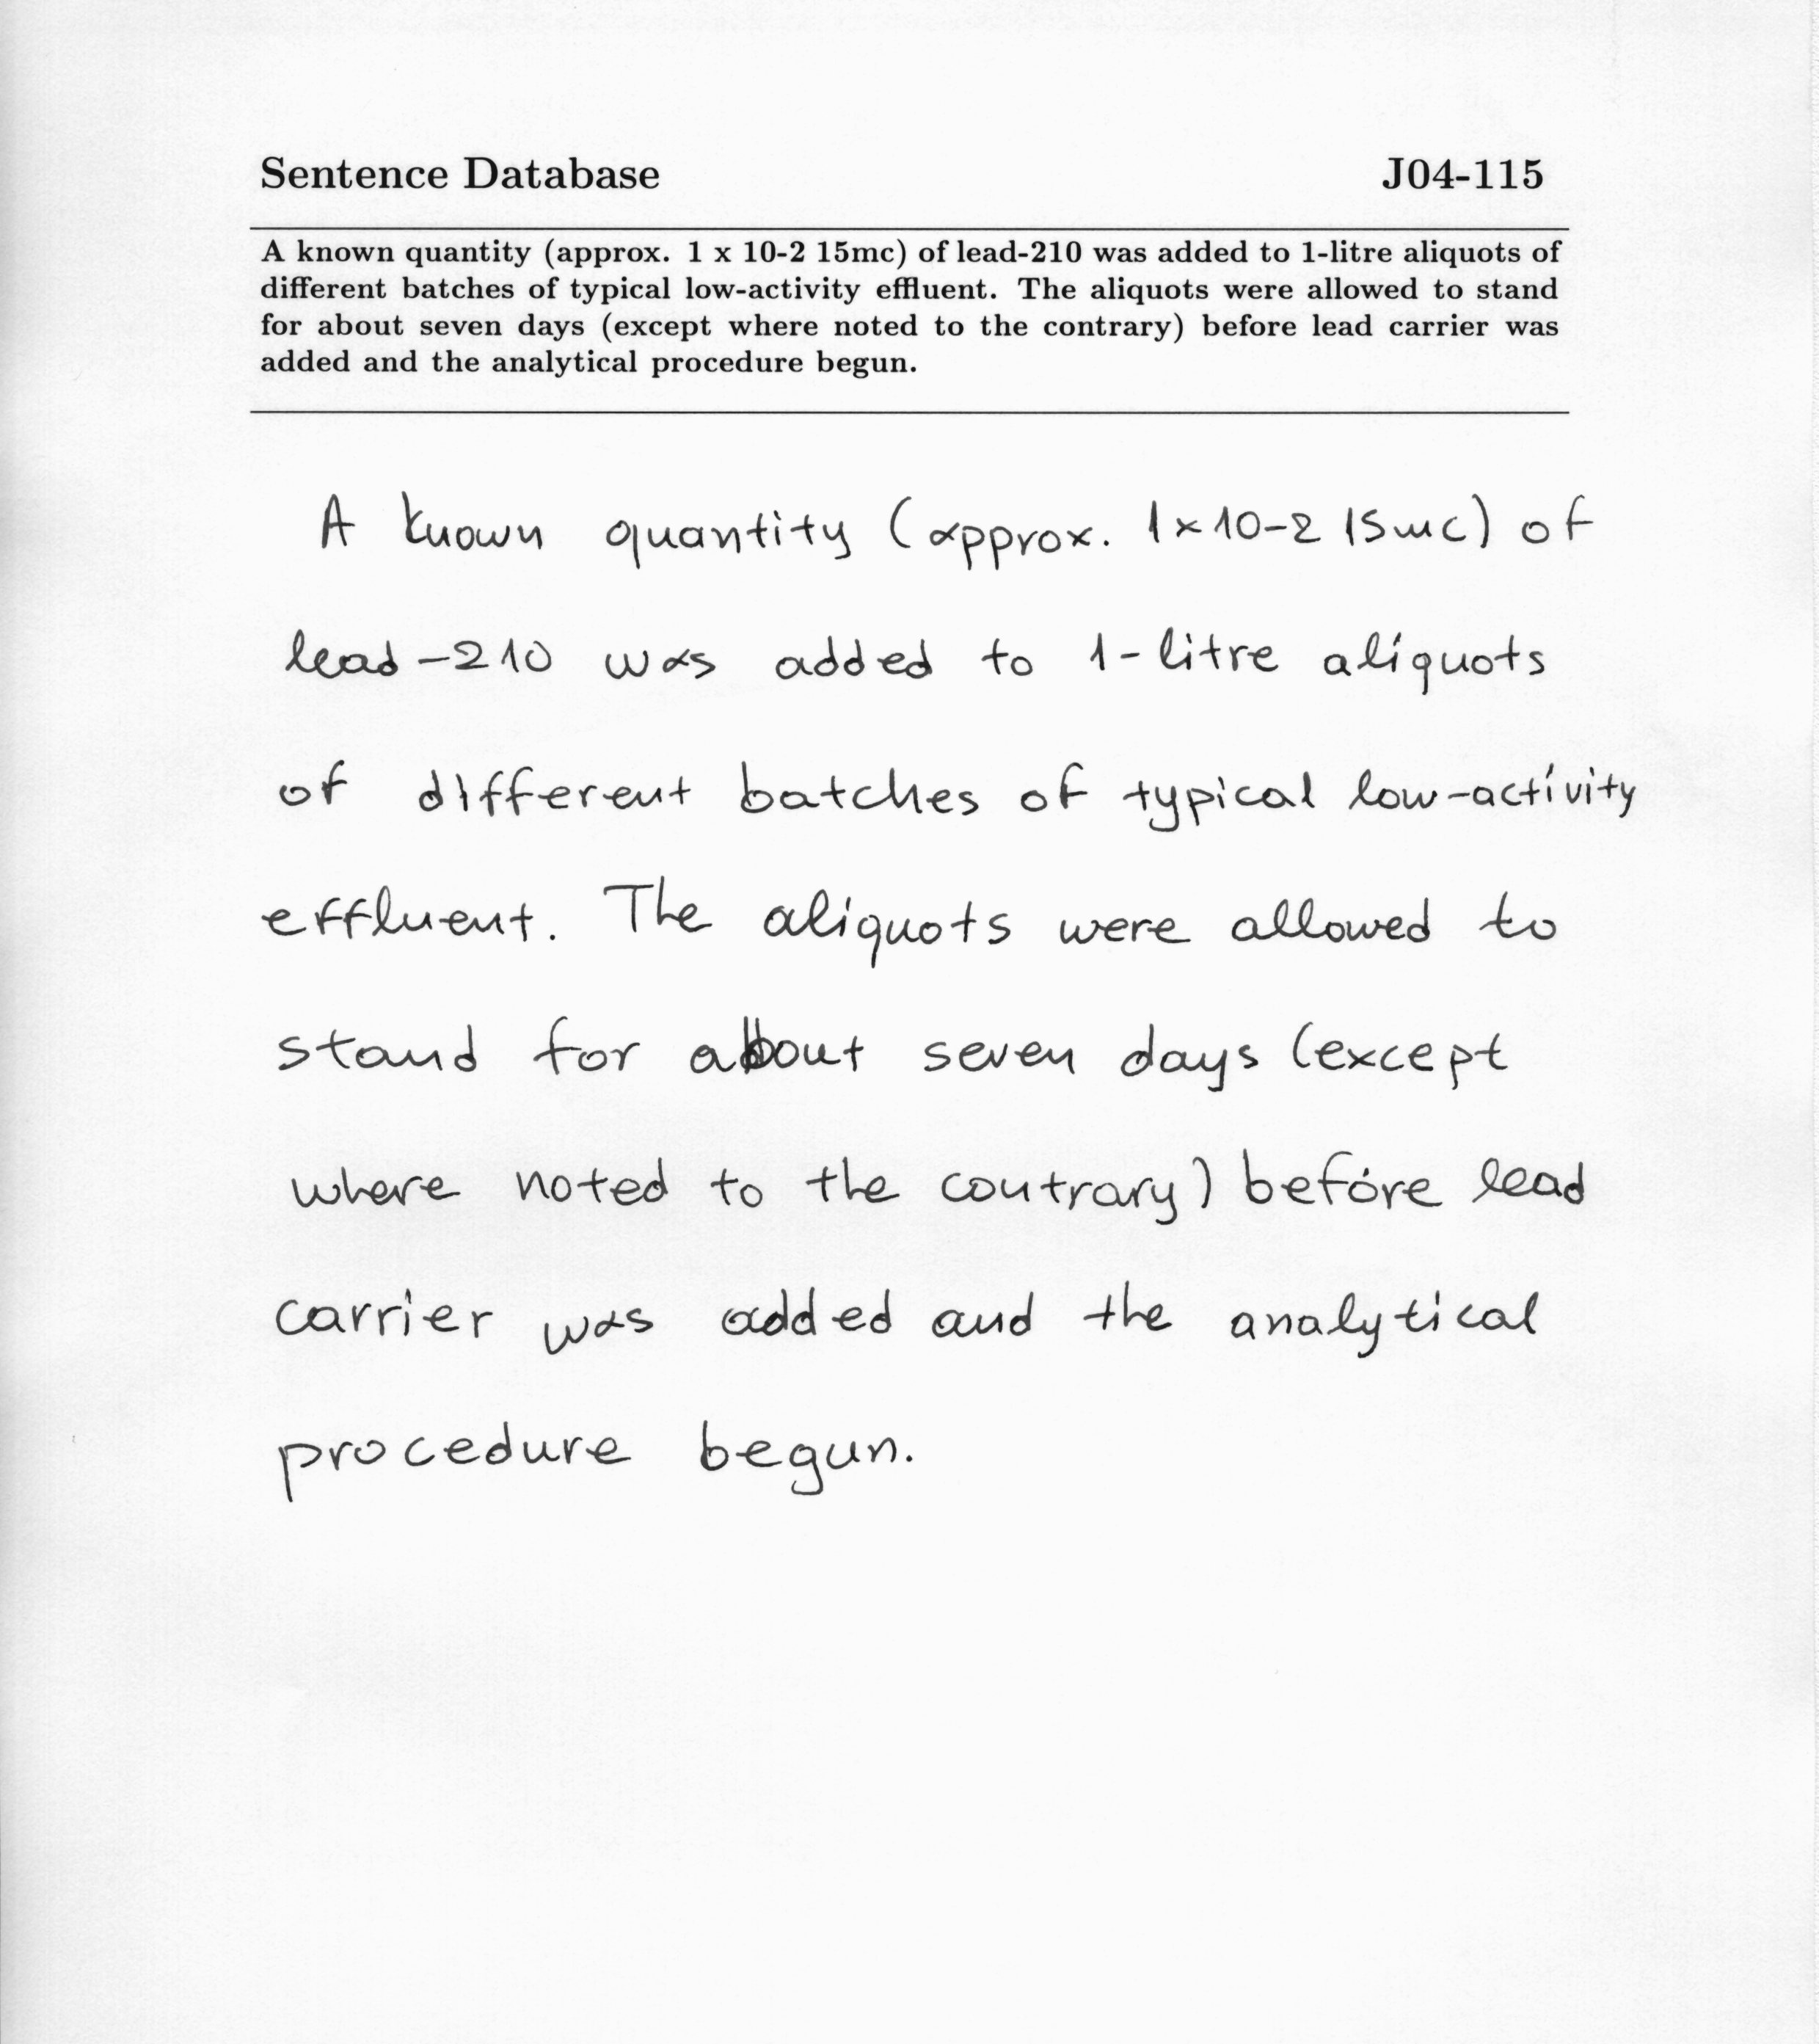 Sentence Database J04-115
A known quantity (approx. 1 x 10-2 15mc) of lead-210 was added to 1-litre aliquots of
different batches of typical low-activity effluent. The aliquots were allowed to stand
for about seven days (except where noted to the contrary) before lead carrier was
added and the analytical procedure begun.
A known quantity (approx. 1x10-2 15mc) of
lead-210 was added to 1-litre aliquots
of different batches of typical low-activity
effluent. The aliquots were allowed to
stand for about seven days (except
where noted to the contrary) before lead
carrier was added and the analytical
procedure begun.